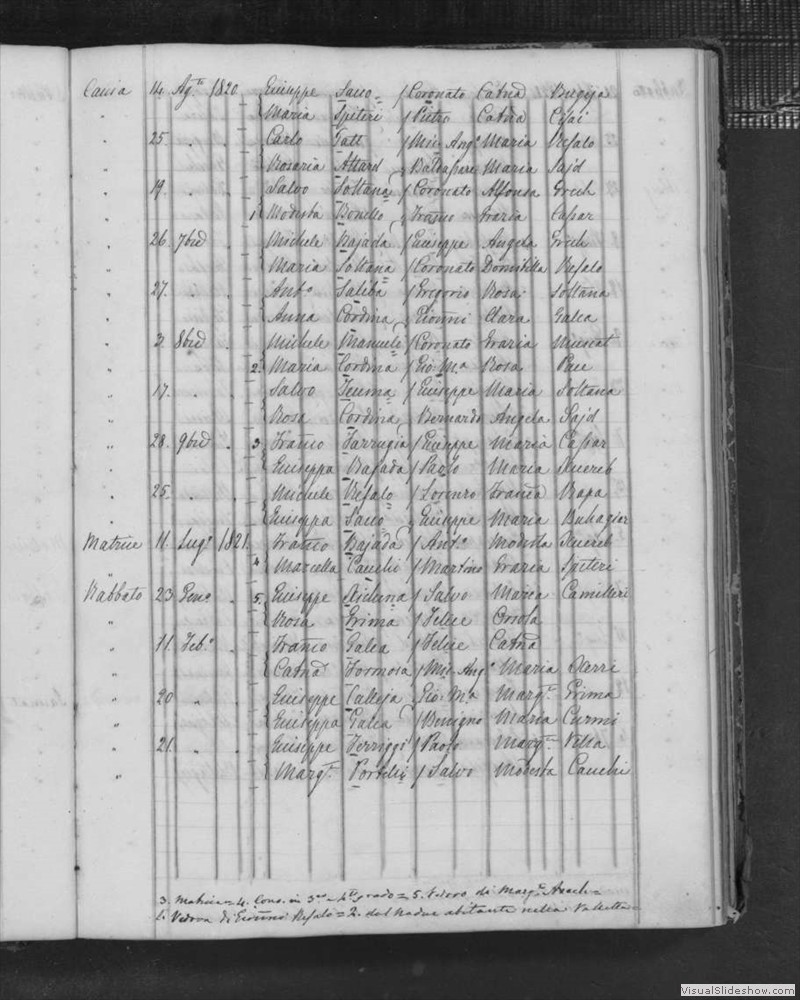 Caccia 14. Agto 1820 Giuseppe Sacco / Coronato Catna Bugeja
" Maria Spiteri / Pietro Catna
" 25. " " Carlo / Mic. Ango Maria Refalo
" Rosaria Attard Baldassare Maria Sajd
" 19. " " Salvo Soltana / Coronato Alfonsa Grech
" 1 Modesta Bonello Franco Grazia Cassar
" 26. 7bre " Michele Bajada / Giuseppe Angela Grech
" Maria Soltana / Coronato Domitilla Refalo
" 27. " " Anto Saliba / Gregorio Rosa Soltana
" Anna Cordina Gioanni Clara Galea
" 3. 8bre " Michele / Coronato Grazia Muscat
" 2. Maria Cordina / Gio Ma Rosa Pace
" 17. " " Salvo Teuma / Giuseppe Maria Soltana
" Rosa Cordina Bernardo Angela Sajd
" 28. 9bre " 3 Franco Farrugia / Giuseppe Maria Cassar
" Giuseppa Bajada / Paolo Maria Xuereb
" 25. " " Michele Refalo / Lorenzo Franca Rapa
" Giuseppa Sacco Giuseppe Maria Buhagiar
Matrice 11. Lugo 1821. Franco Bajada / Anto Modesta Xuereb
" 4 Marcella Cauchi / Martino Grazia Spiteri
Rabbato 23 Geno " 5. Giuseppe Xicluna / Salvo Maria Camilleri
" Rosa Grima / Felice Orsola
" 11. Febo " Franco Galea / Felice Catna
" Catna Formosa / Mic. Ango Maria Xerri
" 20 " " Giuseppe Calleja Gio Ma Margta Grima
" Giuseppa Galea / Benigno Maria Curmi
" 21. " " Giuseppe Ferriggi / Paolo Margta Vella
" Margta Portelli / Salvo Modesta Cauchi
3. = 4. Cons. in 3zo e 4to grado = 5. Vedovo di Margta =
1. Vedova di Gioanni Refalo = 2. del Padre abitante nella Valletta =
VisualSlideshow.com